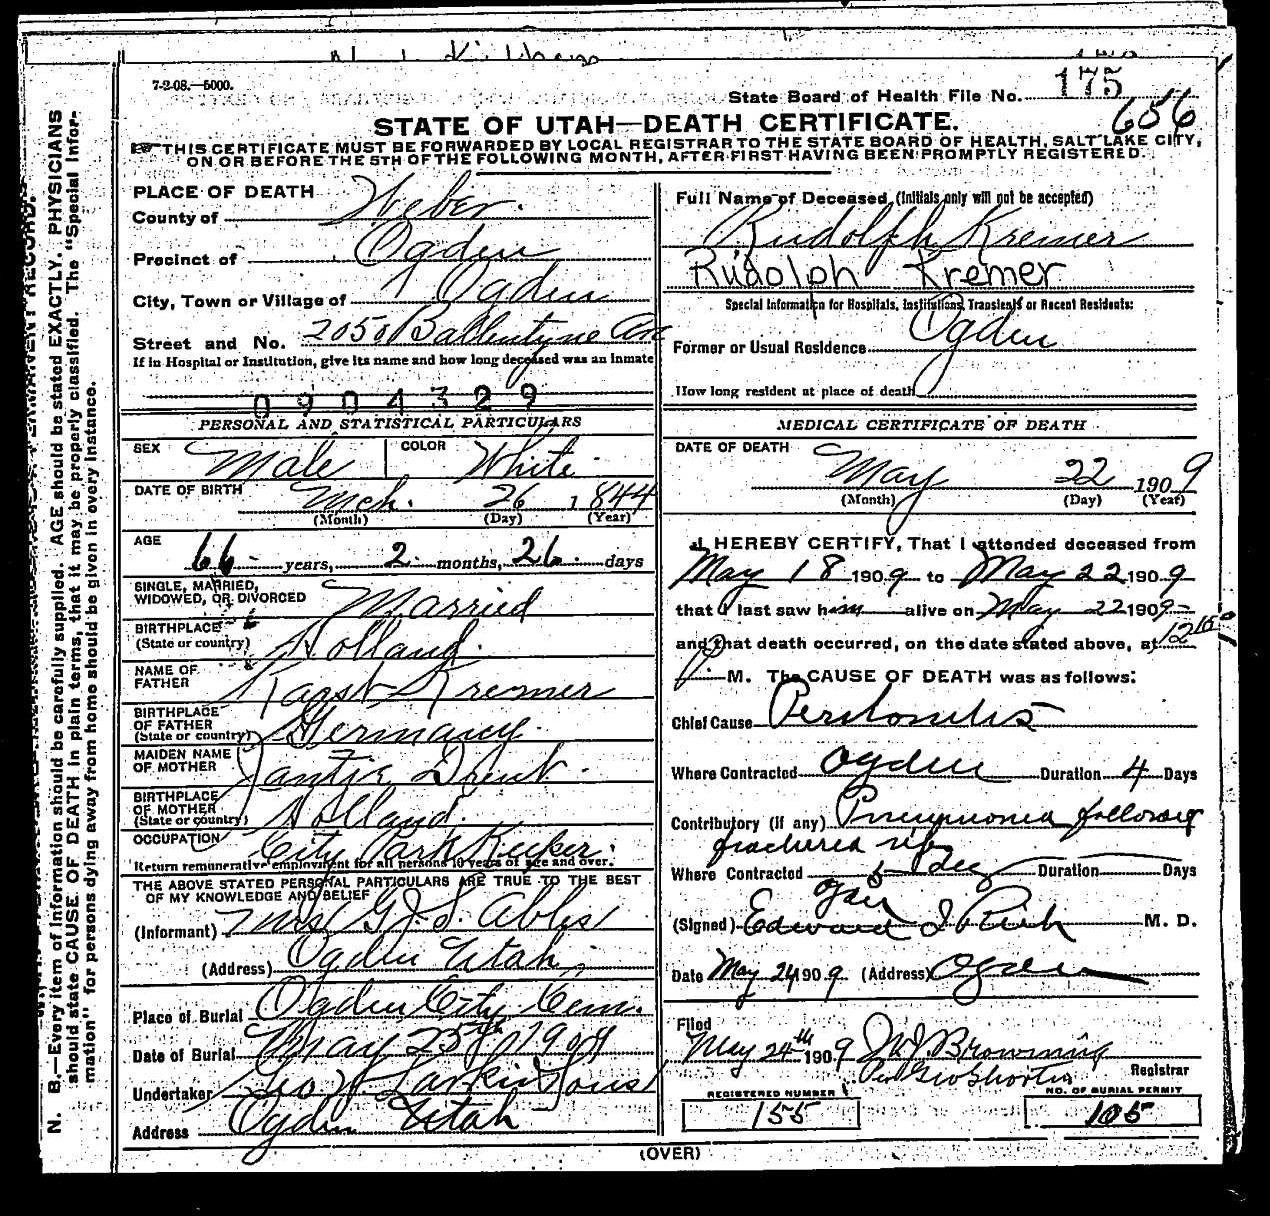 7-2-08.—5000.
State Board of Health File No. 175
656
STATE OF UTAH—DEATH CERTIFICATE.
THIS CERTIFICATE MUST BE FORWARDED BY LOCAL REGISTRAR TO THE STATE BOARD OF HEALTH, SALT LAKE CITY,
ON OR BEFORE THE 5TH OF THE FOLLOWING MONTH, AFTER FIRST HAVING BEEN PROMPTLY REGISTERED.
N. B.—Every item of information should be carefully supplied. AGE should be stated EXACTLY. PHYSICIANS
should state CAUSE OF DEATH in plain terms, that it may be properly classified. The "Special Infor-
mation" for persons dying away from home should be given in every instance.
PLACE OF DEATH
County of Weber.
Precinct of Ogden
City, Town or Village of Ogden
Street and No. 2050 Ballentyne Av
If in Hospital or Institution, give its name and how long deceased was an inmate
0904329
PERSONAL AND STATISTICAL PARTICULARS
SEX Male COLOR White
DATE OF BIRTH Mch. 26 1844
(Month) (Day) (Year)
AGE 66 years, 2 months, 26 days
SINGLE, MARRIED,
WIDOWED, OR DIVORCED Married
BIRTHPLACE
(State or country) Holland.
NAME OF
FATHER Karst Kremer
BIRTHPLACE
OF FATHER
(State or country) Germany.
MAIDEN NAME
OF MOTHER Jantje Drent.
BIRTHPLACE
OF MOTHER
(State or country) Holland.
OCCUPATION City Park Keeper.
Return remunerative employment for all persons 10 years of age and over.
THE ABOVE STATED PERSONAL PARTICULARS ARE TRUE TO THE BEST
OF MY KNOWLEDGE AND BELIEF
(Informant) Mrs G. J. S. Abels
(Address) Ogden Utah
Place of Burial Ogden City Cem.
Date of Burial May 25th 1909
Undertaker Geo W Larkin & Sons
Address Ogden Utah
Full Name of Deceased (Initials only will not be accepted)
Rudolph Kremer
Rudolph Kremer
Special Information for Hospitals, Institutions, Transients or Recent Residents:
Former or Usual Residence Ogden
How long resident at place of death
MEDICAL CERTIFICATE OF DEATH
DATE OF DEATH
May 22 1909
(Month) (Day) (Year)
I HEREBY CERTIFY, That I attended deceased from
May 18 1909 to May 22 1909
that I last saw him alive on May 22 1909
and that death occurred, on the date stated above, at 12 15
P. M. The CAUSE OF DEATH was as follows:
Chief Cause Peritonitis
Where Contracted Ogden Duration 4 Days
Contributory (if any) Pneumonia following
fractured ribs
Where Contracted Duration Days
(Signed) Edward I Rich M. D.
Date May 24 1909 (Address) Ogden
Filed
May 24th 1909 W J Browning
Per Geo Shorten Registrar
REGISTERED NUMBER
155
NO. OF BURIAL PERMIT
105
(OVER)